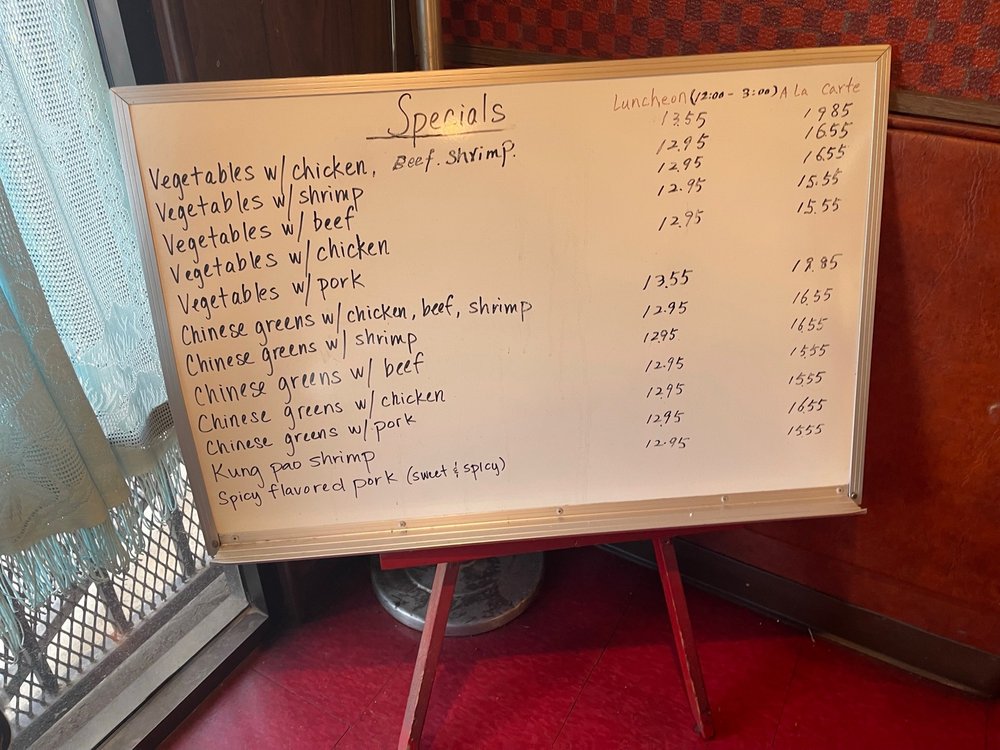 Specials Luncheon (12:00 - 3:00) A La Carte
Vegetables w/ chicken, Beef. Shrimp. 13.55 19.85
Vegetables w/ shrimp 12.95 16.55
Vegetables w/ beef 12.95 16.55
Vegetables w/ chicken 12.95 15.55
Vegetables w/ pork 12.95 15.55
Chinese greens w/ chicken, beef, shrimp 13.55 19.85
Chinese greens w/ shrimp 12.95 16.55
Chinese greens w/ beef 1295 1655
Chinese greens w/ chicken 12.95 15.55
Chinese greens w/ pork 12.95 1555
Kung pao shrimp 1295 1655
Spicy flavored pork (sweet & spicy) 12.95 1555